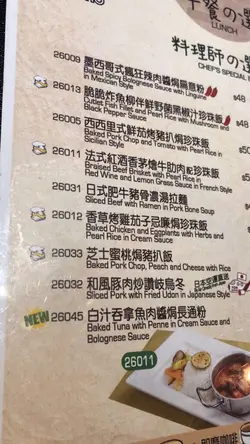 午餐
LUNCH
料理師の
CHEF'S SPECIAL
26009 墨西哥式瘋狂辣肉醬焗扁意粉
Baked Spicy Bolognese Sauce with Linguine
in Mexican Style
26013 脆脆炸魚柳伴鮮野菌黑椒汁珍珠飯 $48
Cutlet Fish Fillet and Pearl Rice with Mushroom and
Black Pepper Sauce
26005 西西里式鮮茄烤豬扒焗珍珠飯 $50
Baked Pork Chop and Tomato with Pearl Rice in
Sicilian Style
26011 法式紅酒香茅燴牛肋肉配珍珠飯
Braised Beef Brisket with Pearl Rice in
Red Wine and Lemon Grass Sauce in French Style
26031 日式肥牛豬骨濃湯拉麵
Sliced Beef with Ramen in Pork Bone Soup
26012 香草烤雞茄子忌廉焗珍珠飯
Baked Chicken and Eggplants with Herbs and
Pearl Rice in Cream Sauce
26033 芝士蜜桃焗豬扒飯
Baked Pork Chop, Peach and Cheese with Rice
26032 和風豚肉炒讚岐烏冬
Sliced Pork with Fried Udon in Japanese Style
NEW 26045 白汁吞拿魚肉醬焗長通粉
Baked Tuna with Penne in Cream Sauce and
Bolognese Sauce
26011